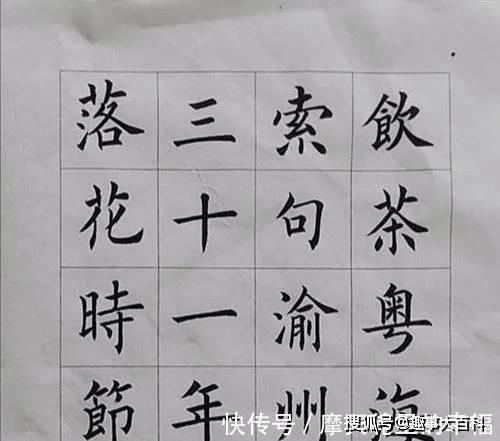 飲茶粤海
索句渝州
三十一年
落花時節
快传号 / 摩
搜狐号@趣事大百科